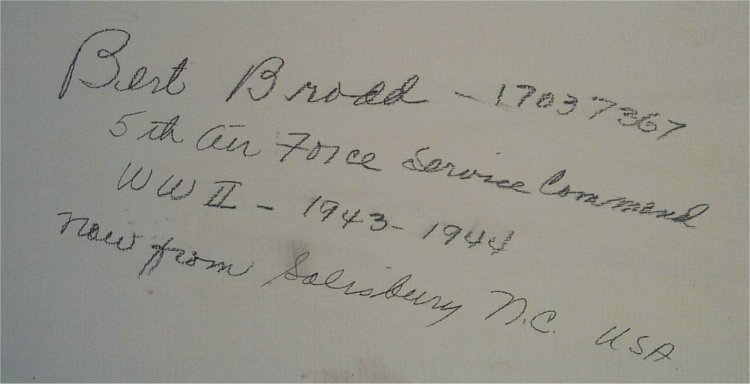 Bert Broad - 17037367
5th Air Force Service Command
WW II - 1943-1944
now from Salisbury N.C. USA